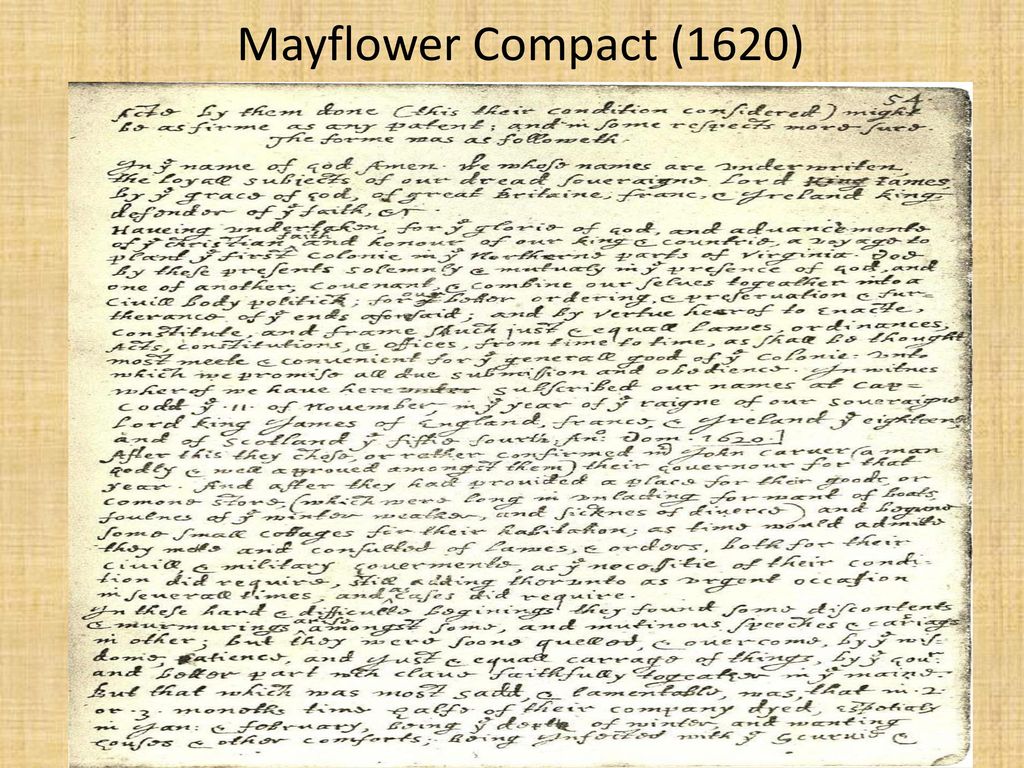 Mayflower Compact (1620)
54.
Acts by them done (this their condition considered) might
be as firme as any patent; and in some respects more sure.
The forme was as followeth.
In yͤ name of God Amen. We whose names are underwriten,
the loyall subjects of our dread soveraigne Lord King James
by yͤ grace of God, of great Britaine, franc, & Ireland king,
defender of yͤ faith, &c
Haveing undertaken, for yͤ glorie of God, and advancemente
of yͤ christian faith and honour of our king & countrie, a voyage to
plant yͤ first colonie in yͤ Northerne parts of Virginia. Doe
by these presents solemnly & mutualy in yͤ presence of God, and
one of another, covenant, & combine our selves togeather into a
Civill body politick; for our better ordering, & preservation & fur=
therance of yͤ ends aforesaid; and by vertue hearof to enacte,
constitute, and frame shuch just & equall Lawes, ordinances,
Acts, constitutions, & offices, from time to time, as shall be thought
most meete & convenient for yͤ generall good of yͤ Colonie: unto
which we promise all due submission and obedience. In witnes
wherof we have hereunder subscribed our names at Cap=
Codd yͤ .11. of November, in yͤ year of yͤ raigne of our soveraigne
Lord king James of England, france, & Ireland yͤ eighteenth
and of Scotland yͤ fiftie fourth. Anͦ: Dom. 1620.]
After this they chose, or rather confirmed mͬ John Carver (a man
godly & well approved amongst them) their Governour for that
year. And after they had provided a place for their goods, or
comone store, (which were long in unlading for want of boats,
foulnes of yͤ winter weather, and sicknes of diverce) and begune
some small cottages for their habitation; as time would admite
they mette and consulted of lawes, & orders, both for their
civill, & military Govermente, as yͤ necessitie of their condi=
tion did require, still adding therunto as urgent occasion
in severall times, and as cases did require.
In these hard & difficulte beginings they found some discontents
& murmurings arise amongst some, and mutinous speeches & cariags
in other; but they were soone quelled, & overcome, by yͤ wis=
dome, patience, and just & equall carrage of things, by yͤ Govͬ
and better part wch clave faithfully togeather in yͤ maine.
But that which was most sadd, & lamentable, was, that in .2.
or .3. moneths time halfe of their company dyed, espetialy
in Jan: & february, being yͤ depth of winter, and wanting
houses & other comforts; being Infected with yͤ Scurvie &